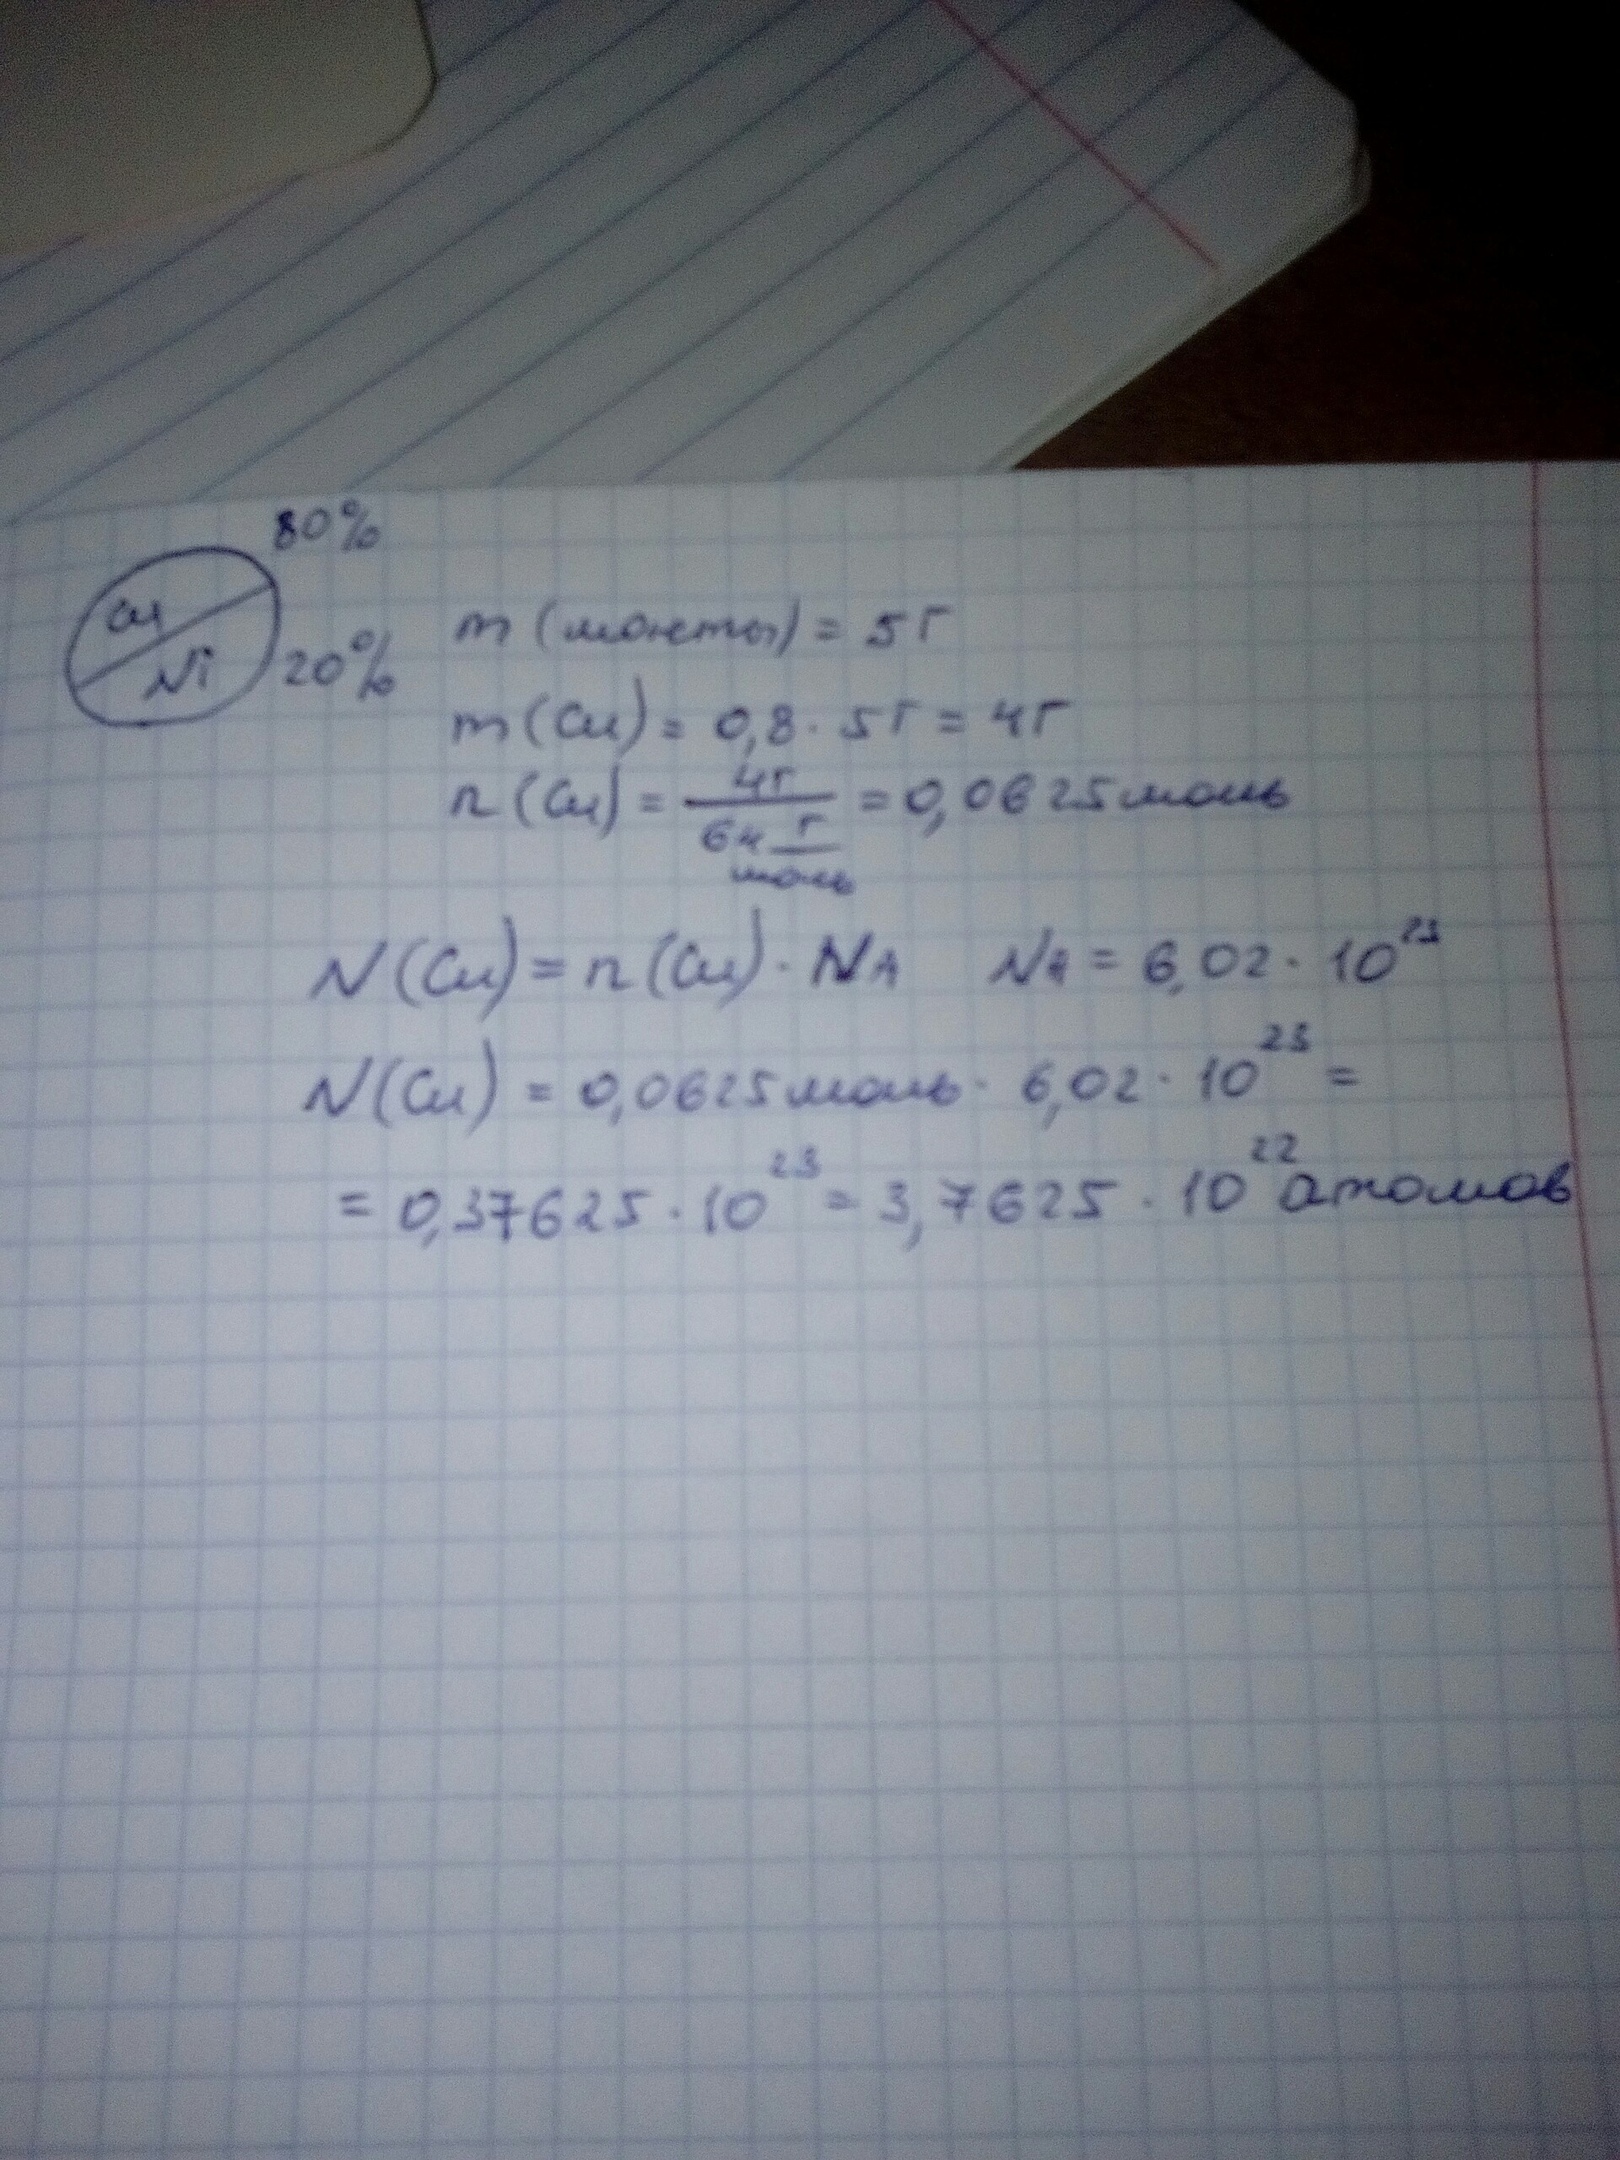 80%
Cu
Ni
20%
m (монеты) = 5 г
m (Cu) = 0,8 · 5 г = 4 г
n (Cu) = 4 г / 64 г/моль = 0,0625 моль
N (Cu) = n (Cu) · NA NA = 6,02 · 10²³
N (Cu) = 0,0625 моль · 6,02 · 10²³ =
= 0,37625 · 10²³ = 3,7625 · 10²² атомов